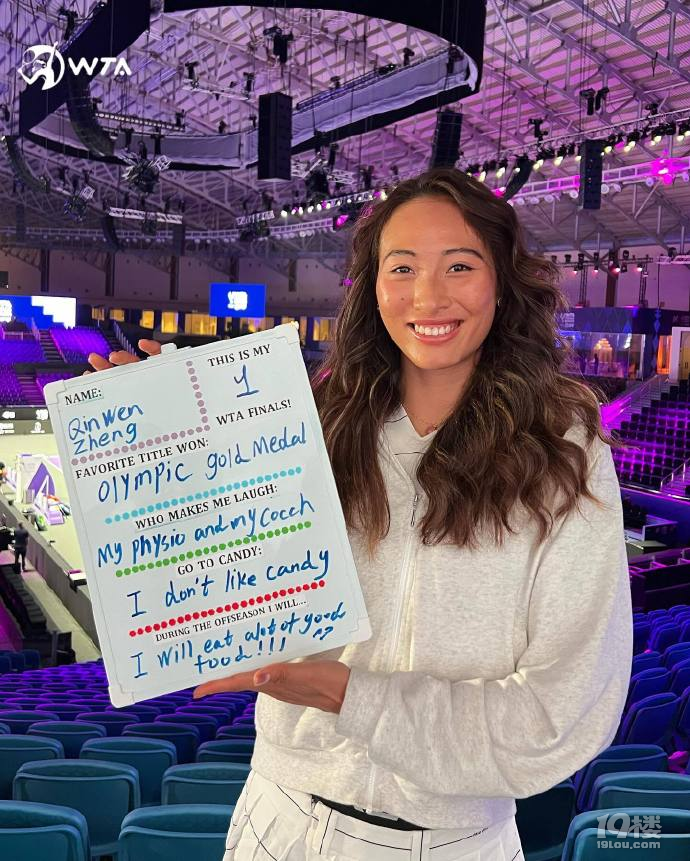 WTA
NAME:
QinWen
Zheng
THIS IS MY
1
WTA FINALS!
FAVORITE TITLE WON:
Olympic gold Medal
WHO MAKES ME LAUGH:
My physio and my coech
GO TO CANDY:
I don't like candy
DURING THE OFFSEASON I WILL...
I will eat alot of good
food!!!
19楼
19lou.com